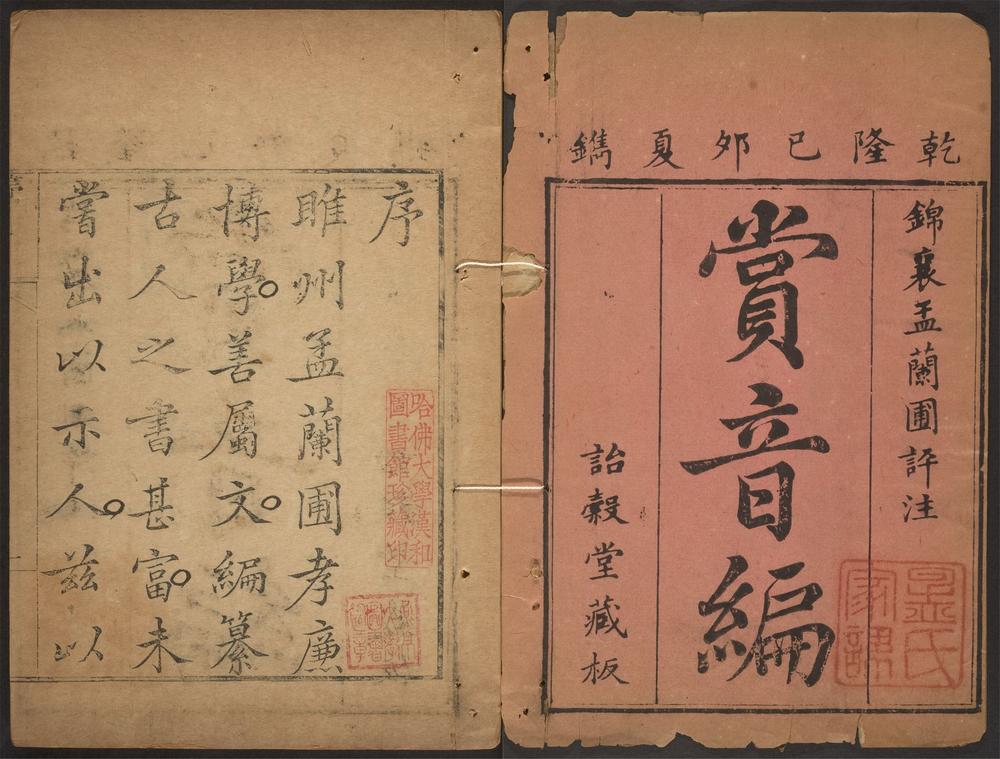 乾隆已夘夏鐫
錦襄孟蘭圃評注
賞音編
詒穀堂藏板
孟氏
序
睢州孟蘭圃孝廉
博學。善屬文。編纂
古人之書甚富。未
嘗出以示人。茲以
哈佛大學漢和
圖書館珍藏印